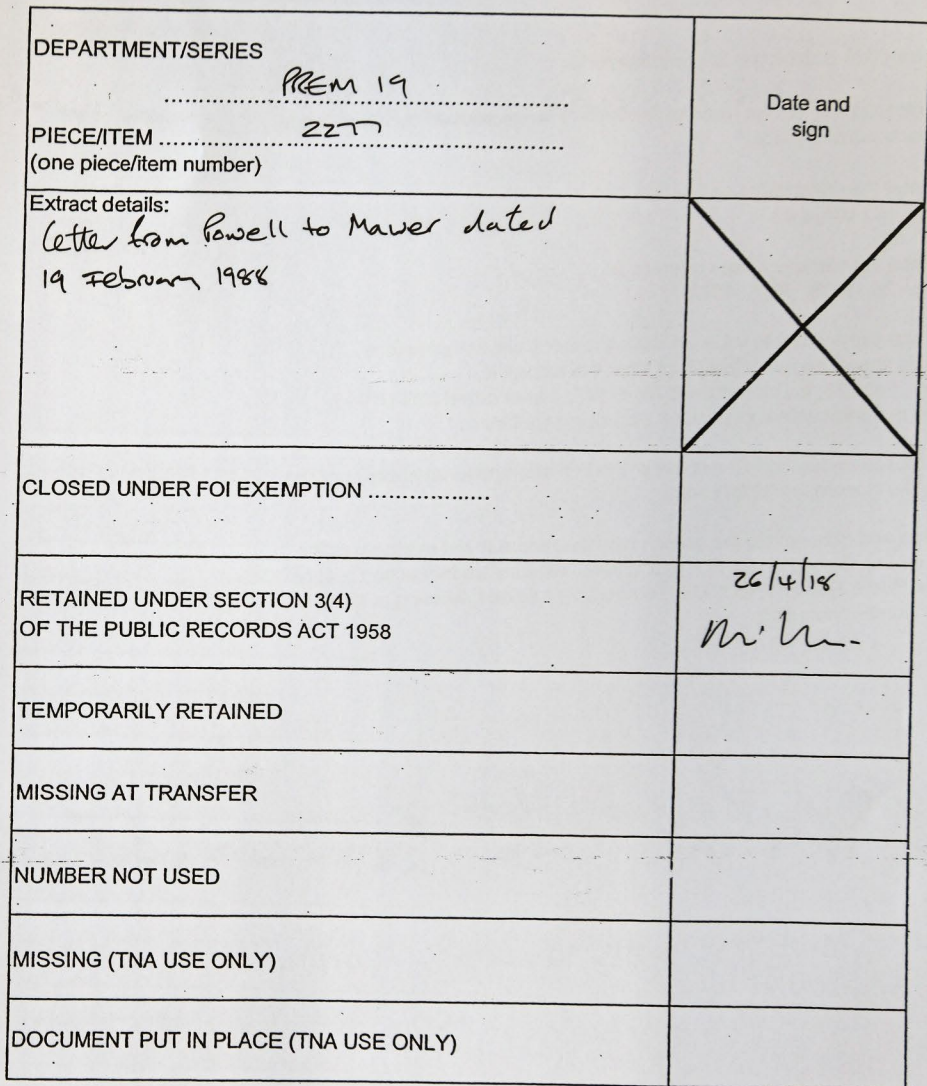 DEPARTMENT/SERIES
PREM 19
Date and
sign
PIECE/ITEM .......... 2277 ..........
(one piece/item number)
Extract details:
Letter from Powell to Mawer dated
19 February 1988
CLOSED UNDER FOI EXEMPTION ..................
RETAINED UNDER SECTION 3(4)
OF THE PUBLIC RECORDS ACT 1958
26/4/18
TEMPORARILY RETAINED
MISSING AT TRANSFER
NUMBER NOT USED
MISSING (TNA USE ONLY)
DOCUMENT PUT IN PLACE (TNA USE ONLY)